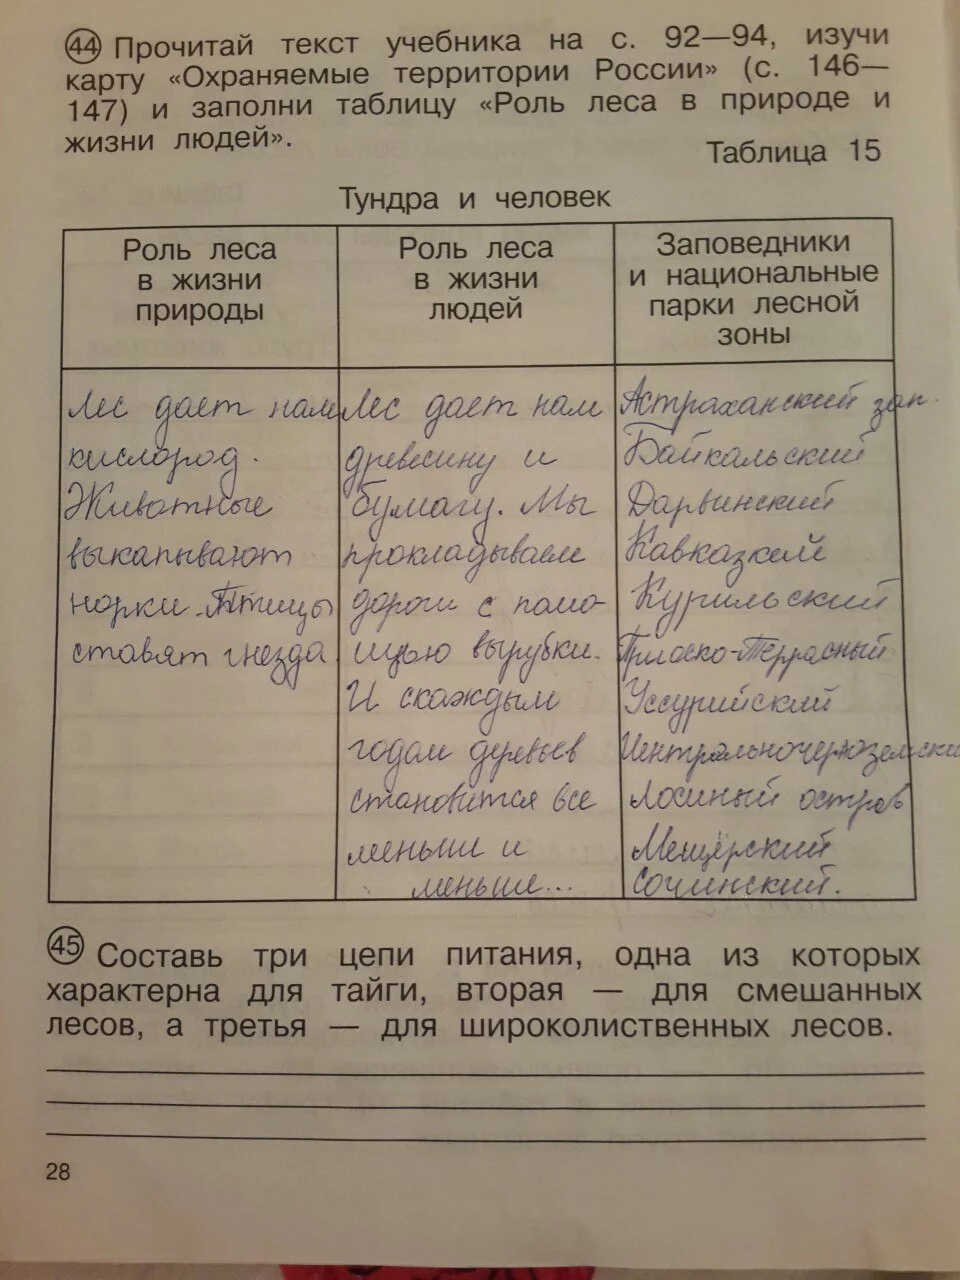 44 Прочитай текст учебника на с. 92—94, изучи
карту «Охраняемые территории России» (с. 146—
147) и заполни таблицу «Роль леса в природе и
жизни людей».
Таблица 15
Тундра и человек
Роль леса
в жизни
природы
Роль леса
в жизни
людей
Заповедники
и национальные
парки лесной
зоны
Лес дает нам
кислород.
Животные
выкапывают
норки. Птицы
ставят гнезда.
Лес дает нам
древесину и
бумагу. Мы
прокладываем
дороги с помо-
щью вырубки.
И скаждым
годом деревьев
становится все
меньши и
меньше...
Астраханский зап.
Байкальский
Дарвинский
Кавказкий
Курильский
Приоско-Террасный
Уссурийский
Центральночерноземский
Лосиный остров
Мещёрский
Сочинский.
45 Составь три цепи питания, одна из которых
характерна для тайги, вторая — для смешанных
лесов, а третья — для широколиственных лесов.
28